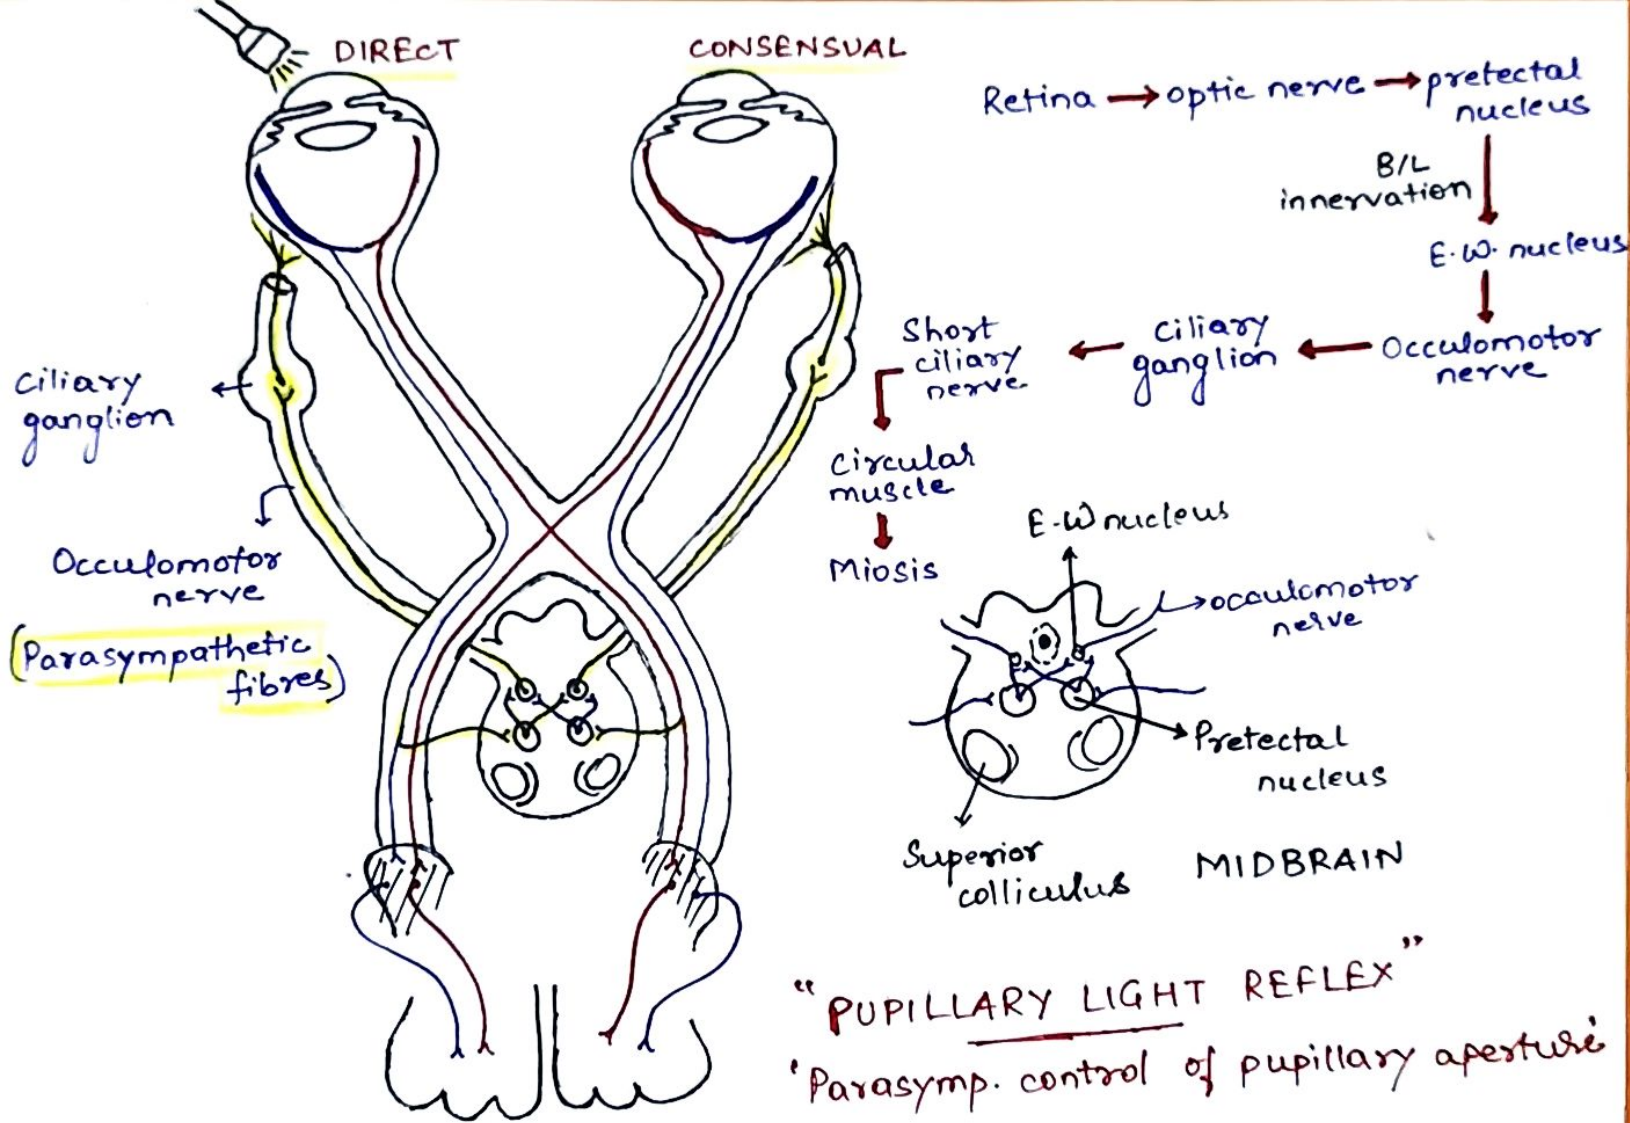 DIRECT
CONSENSUAL
Retina → optic nerve → pretectal
nucleus
B/L
innervation
E.W. nucleus
Occulomotor
nerve
ciliary
ganglion
Short
ciliary
nerve
circular
muscle
Miosis
ciliary
ganglion
Occulomotor
nerve
(Parasympathetic
fibres)
E-W nucleus
occulomotor
nerve
Pretectal
nucleus
Superior
colliculus
MIDBRAIN
"PUPILLARY LIGHT REFLEX"
'Parasymp. control of pupillary aperture'